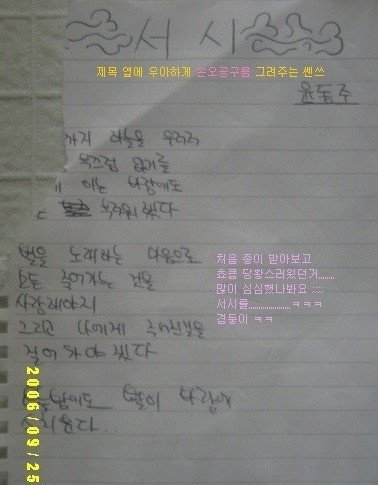 서 시
제목 옆에 우아하게 손모공구름 그려주는 쎈쓰
윤동주
까지 하늘을 우러러
부끄럼 없기를
이는 바람에도
괴로워했다
별을 노래하는 마음으로
모든 죽어가는 것을
사랑해야지
그리고 나에게 주어진 길을
걸어가야겠다
오늘밤에도 별이 바람에
스치운다.
처음 종이 받아보고
쵸큼 당황스러웠던거,,,,,,
많이 심심했나봐요 ;;;;
서시를,,,,,,,,,,,,,,,,,,ㅋㅋㅋ
검둥이 ㅋㅋ
2006/09/25